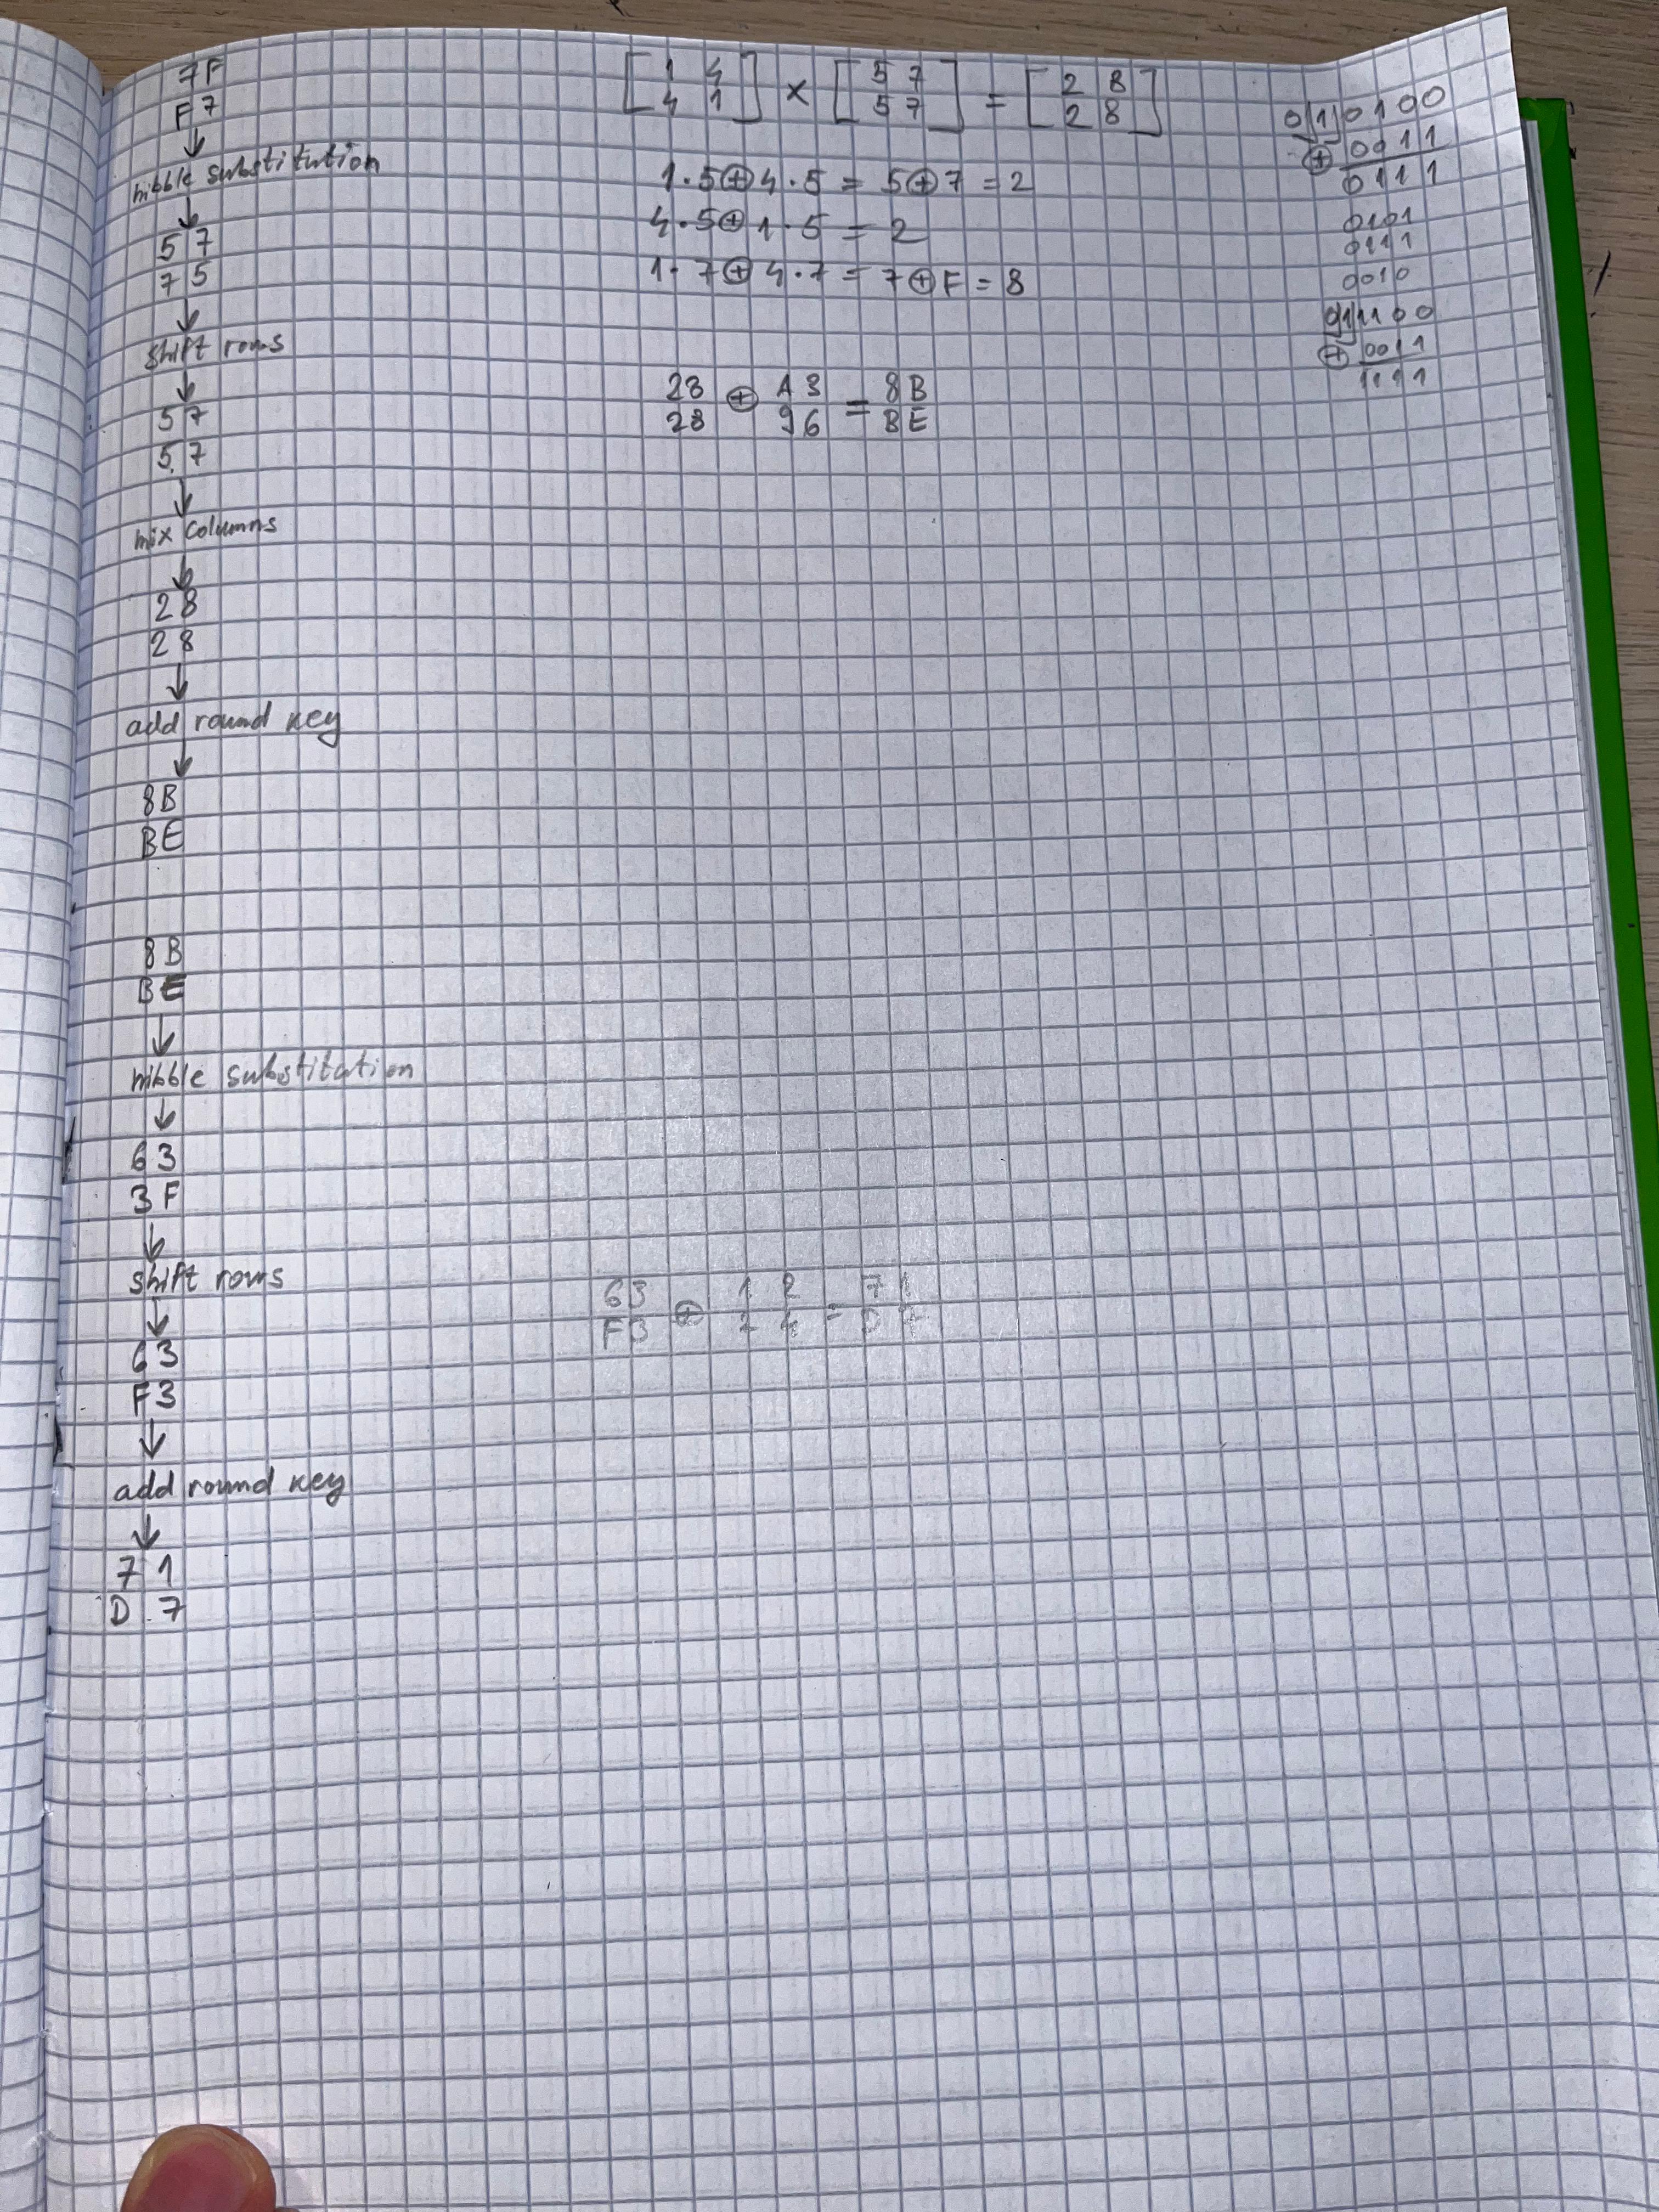 7F
F7
↓
nibble substitution
↓
57
75
↓
shift rows
↓
57
57
↓
mix columns
↓
28
28
↓
add round key
↓
8B
BE
8B
BE
↓
nibble substitution
↓
63
3F
↓
shift rows
↓
63
F3
↓
add round key
↓
7 1
D 7
[1 4] × [5 7] = [2 8]
[4 1] [5 7] [2 8]
1·5⊕4·5 = 5⊕7 = 2
4·5⊕1·5 = 2
1·7⊕4·7 = 7⊕F = 8
28 ⊕ A3 = 8B
28 96 BE
63 ⊕ 1 2 = 7 1
F3 2 4 D 7
010100
⊕ 0011
0111
0101
0111
0010
011100
⊕ 0011
1111